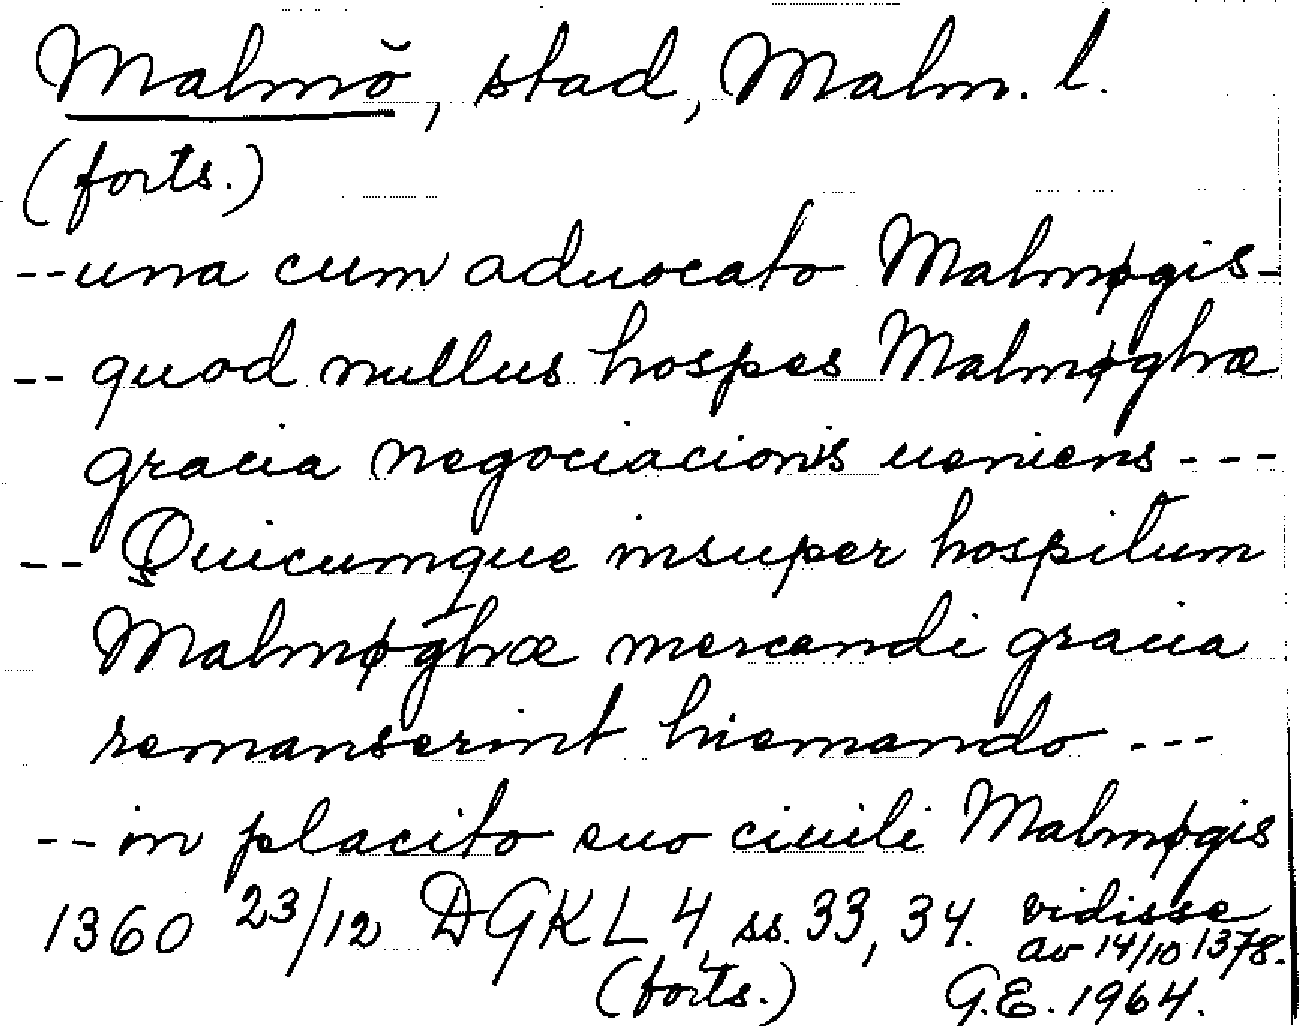 Malmö, stad, Malm. l.
(forts.)
-- una cum aduocato Malmøgis -
-- quod nullus hospes Malmøghæ
gracia negociacionis ueniens ---
-- Quicumque insuper hospitum
Malmøghæ mercandi gracia
remanserint hiemando ---
-- in placito suo ciuili Malmøgis
1360 23/12 DGKL 4, ss. 33, 34. vidisse
av 14/10 1378.
(forts.) G.E. 1964.